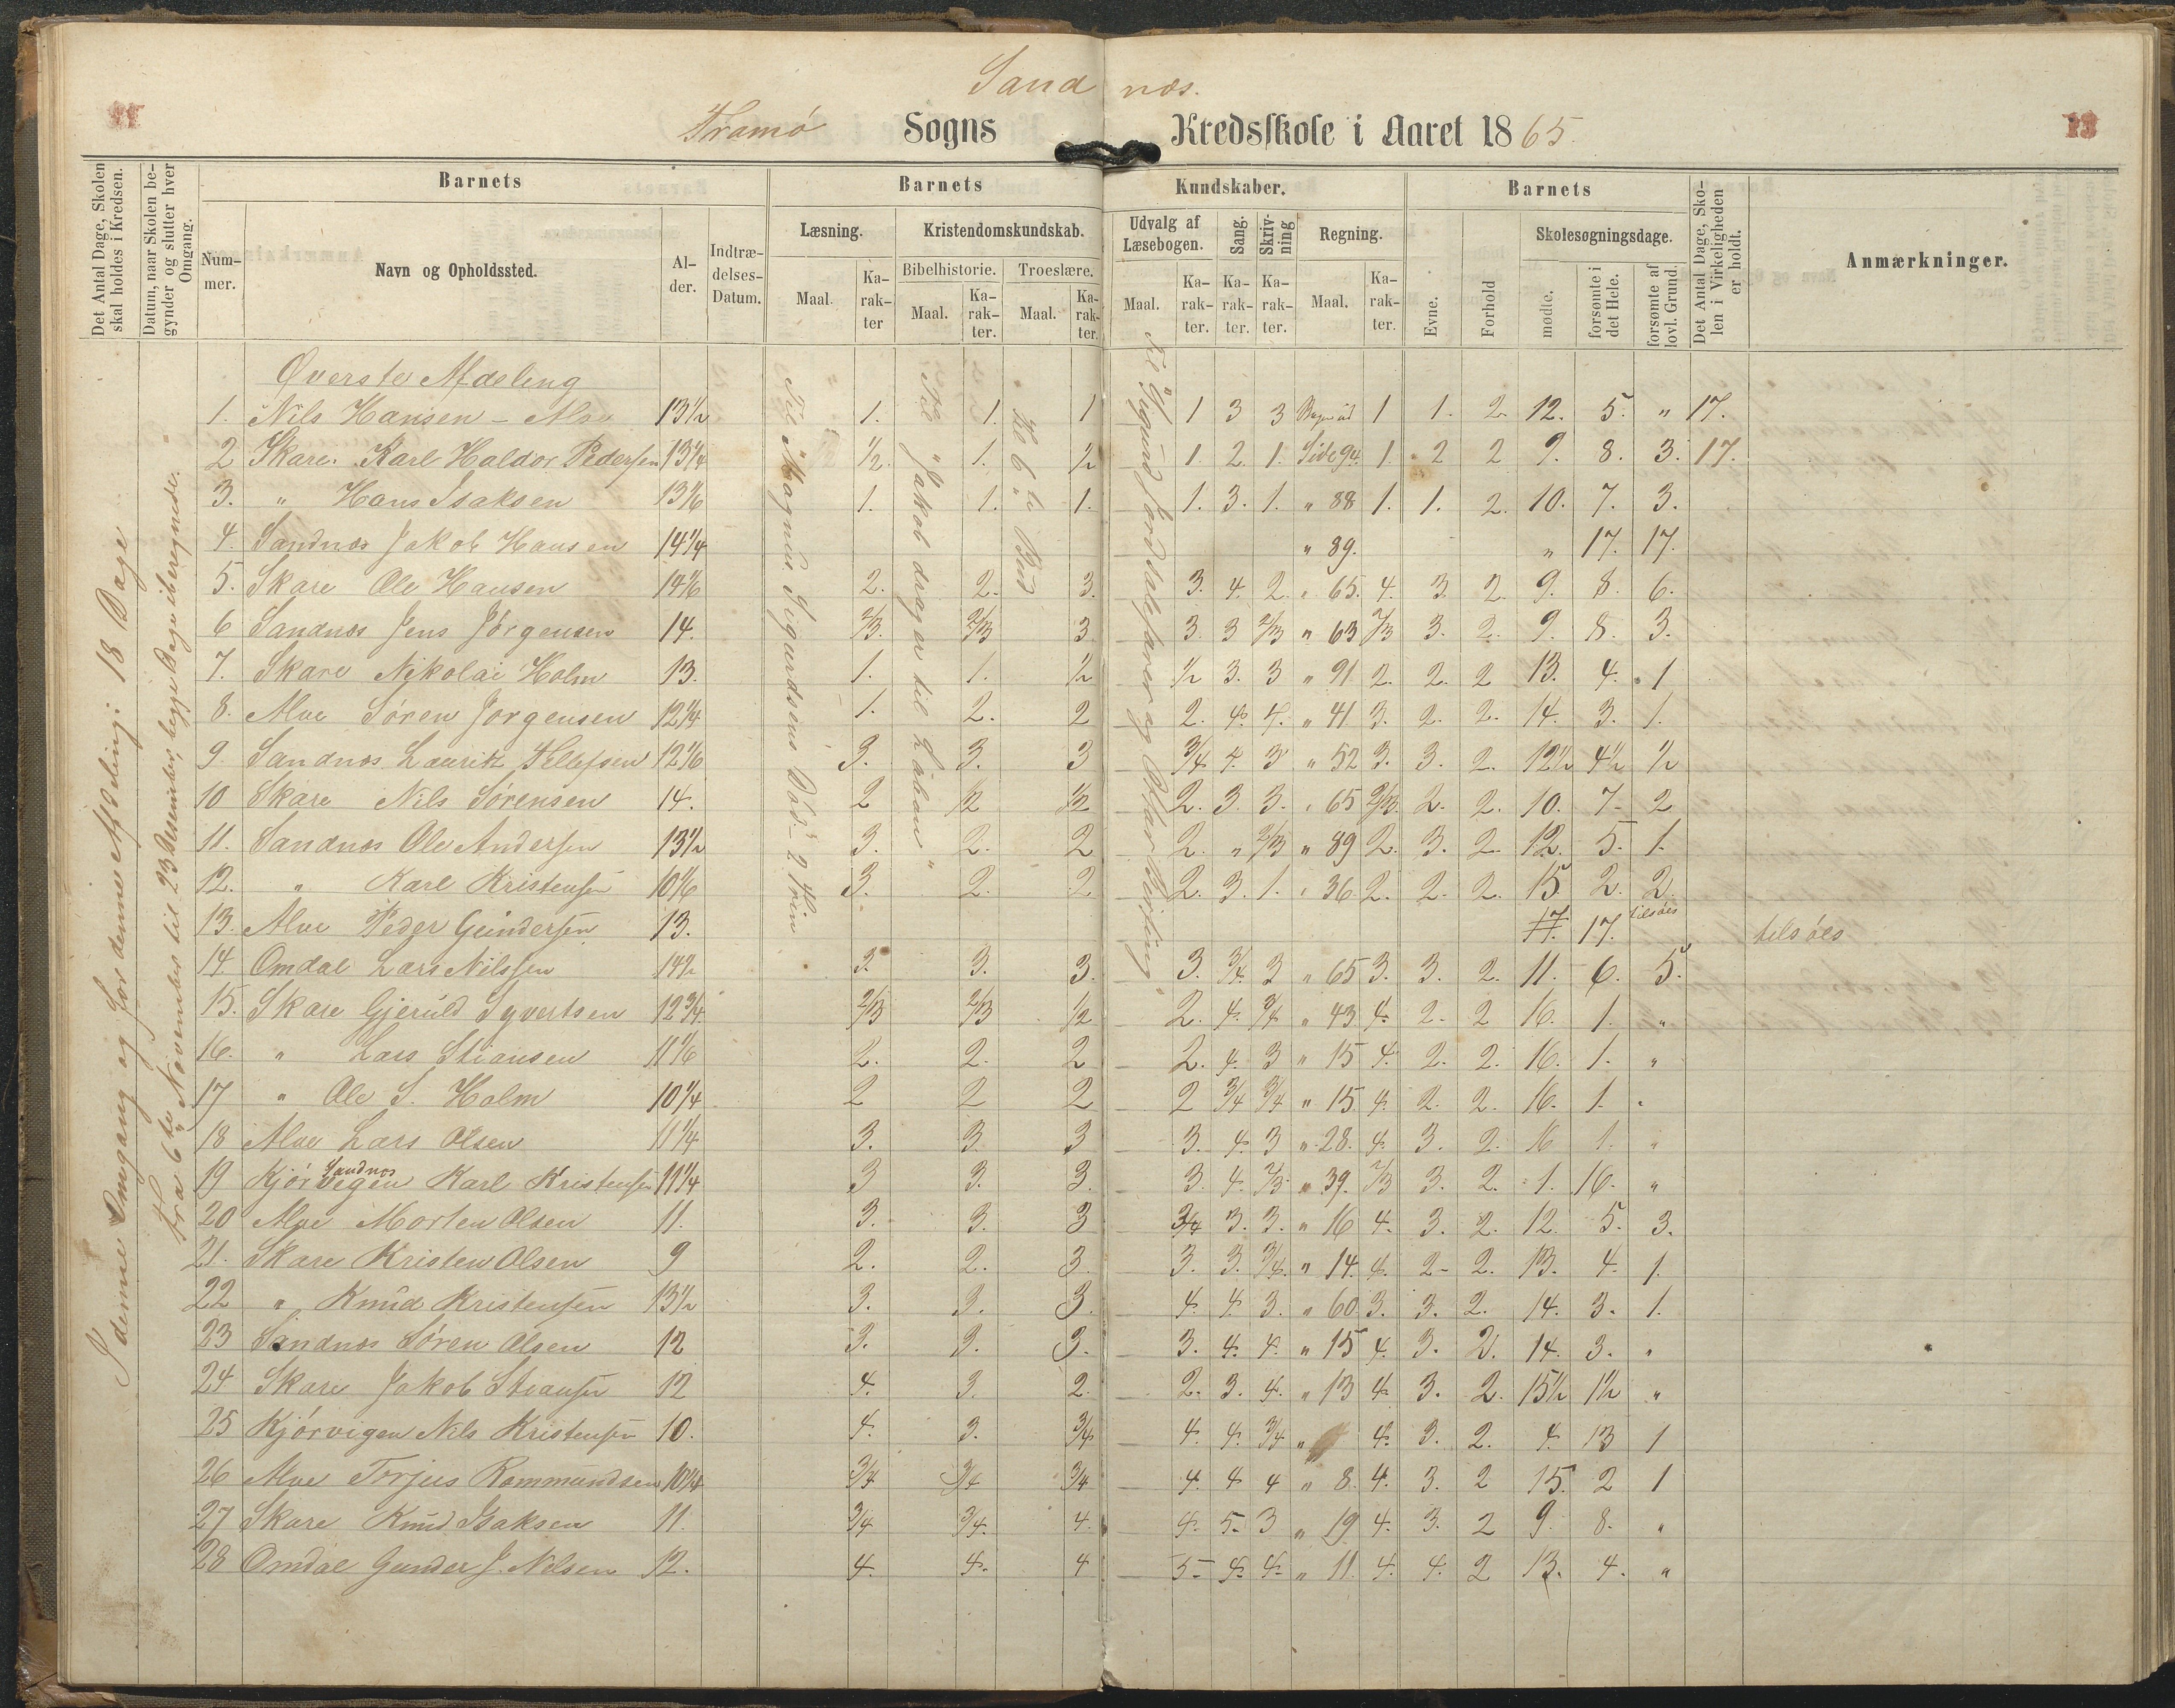 Sandnæs.
Tromø Sogns Kredsskole i Aaret 1865.
13
Det Antal Dage, Skolen skal holdes i Kredsen.
Datum, naar Skolen begynder og slutter hver Omgang.
Barnets
Nummer.
Navn og Opholdssted.
Alder.
Indtrædelses-Datum.
Barnets Kundskaber.
Læsning.
Maal.
Karakter
Kristendomskundskab.
Bibelhistorie.
Maal.
Karakter.
Troeslære.
Maal.
Karakter.
Udvalg af Læsebogen.
Maal.
Karakter.
Sang.
Karakter.
Skrivning
Karakter.
Regning.
Maal.
Karakter.
Barnets
Evne.
Forhold
Skolesøgningsdage.
mødte.
forsømte i det Hele.
forsømte af lovl. Grund.
Det Antal Dage, Skolen i Virkeligheden er holdt.
Anmærkninger.
I denne Omgang og for denne Afdeling: 18 Dage
fra 6te November til 23 Desember, begge Dage iberegnede.
Til "Magnus Sigurdsens Død" 2 Trin
Til "Jakob drager til Laban"
Til 6te Bud
Til "Sigurd Jorsalefarer og Ottar Birting"
Øverste Afdeling
1. Nils Hansen - Alve 13½ 1. 1. 1 1 3 3 1 1. 2. 12. 5. " 17.
2 Skare. Karl Haldor Pedersen 13¼ ½. 1. ½ 1. 2. 1. Side 94. 1. 2 2 9. 8. 3. 17.
3. " Hans Isaksen 13⅙ 1. 1. 1. 1. 3. 1. " 88 1. 1. 2. 10. 7. 3.
4. Sandnæs Jakob Hansen 14¼ " 89. " 17. 17.
5. Skare Ole Hansen 14⅙ 2. 2. 3. 3. 4. 2. " 65. 4. 3. 2. 9. 8. 6.
6 Sandnæs Jens Jørgensen 14. 2/3. 2/3 3 3. 3 2/3 " 63 2/3 3. 2. 9. 8. 3.
7. Skare Nikolai Holm 13. 1. 1. ½ ½ 3. 3 " 91 2. 2. 2 13. 4. 1
8. Alve Søren Jørgensen 12¼ 1. 2. 2 2. 4. 4. " 41 3. 2. 2. 14. 3. 1.
9. Sandnæs Laurits Tellefsen 12⅙ 3. 3. 3 3/4 4. 3 " 52 3. 3. 2. 12½ 4½ ½
10 Skare Nils Sørensen 14. 2 ½ ½ 2. 3. 3. " 65 2/3. 2. 2. 10. 7. 2
11. Sandnæs Ole Andersen 13½ 3. 2. 2 2. " 2/3 " 89 2. 3. 2. 12. 5. 1.
12. " Karl Kristensen 10⅙ 3. 2. 2 2. 3. 1. " 36. 2. 2. 2. 15 2. 2.
13. Alve Peder Gundersen 13. 17. 17. tilsøes tilsøes
14. Omdal Lars Nilssen 14½ 3. 3. 3. 3. 3/4. 3 " 65 3. 3. 2. 11. 6. 5.
15. Skare Gjeruld Syvertsen 12¾ 2/3 2/3 ½ 2. 4. 3/4 " 43 4. 2. 2 16. 1. "
16. " Lars Stiansen 11⅙ 2. 2. 2 2. 4. 3 " 15 4. 2. 2. 16. 1. "
17 " Ole S. Holm 10¼ 2 2 2 2 3/4 3/4 " 15 4. 2. 2. 16. 1. "
18 Alve Lars Olsen 11¼ 3. 3. 3 3. 4. 3 " 28. 4. 3. 2. 16 1. "
19 Kjørvigen Sandnæs Karl Kristensen 11¼ 3 3. 3. 3. 4. 2/3 " 39. 2/3 3. 2. 1. 16. "
20 Alve Morten Olsen 11. 3. 3. 3 3/4 3. 3. " 16 4. 3. 2. 12. 5. 3.
21. Skare Kristen Olsen 9 2. 2. 3. 3. 3. 3/4. " 14. 4. 2. 2. 13. 4. 1.
22 " Knud Kristensen 13½ 3. 3. 3. 4. 4. 3. " 60. 3. 3. 2. 14. 3. 1.
23 Sandnæs Søren Olsen 12 3. 3. 3. 3. 4. 4. " 15 4. 3. 2. 14. 3. "
24 Skare Jakob Stiansen 12 4. 3. 2. 2. 3. 4. " 13 4. 3. 2. 15½ 1½ "
25 Kjørvigen Nils Kristensen 10. 4. 3. 3/4 4. 4. 3/4 " 4. 3. 2. 4. 13 1
26 Alve Torjus Rommundsen 10¼ 3/4 3/4 3/4 4. 4 4 " 8. 4. 3. 2 15. 2 1
27 Skare Knud Isaksen 11. 3/4 3/4. 4. 4. 5. 3 " 19 4. 3. 2 9. 8. "
28 Omdal Gunder J. Nilsen 12. 4. 4. 4 5. 4. 4. " 11. 4. 4. 2 13. 4. "